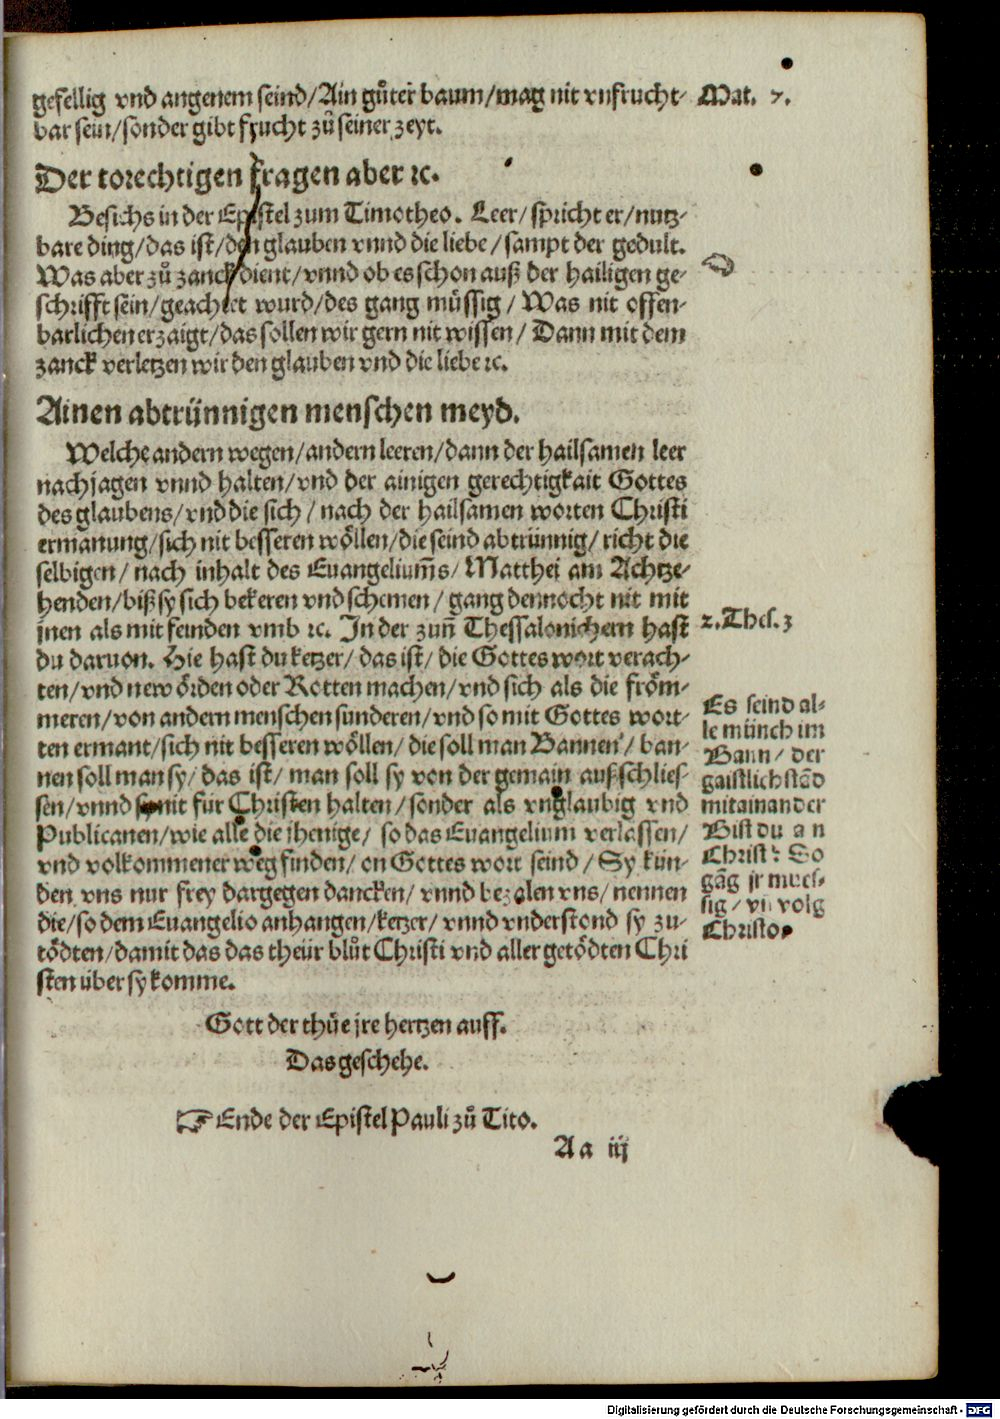 gefellig vnd angenem seind/Ain gůter baum/mag nit vnfrucht-
bar sein/sonder gibt frucht zů seiner zeyt.
Mat. 7.
Der torechtigen fragen aber ꝛc.
Besichs in der Epistel zum Timotheo. Leer/spricht er/nutz-
bare ding/das ist/den glauben vnnd die liebe/sampt der gedult.
Was aber zů zanck dient/vnnd ob es schon auß der hailigen ge-
schrifft sein/geachtet wurd/des gang müssig/Was nit offen-
barlichen erzaigt/das sollen wir gern nit wissen/Dann mit dem
zanck verletzen wir den glauben vnd die liebe ꝛc.
Ainen abtrünnigen menschen meyd.
Welche andern wegen/andern leeren/dann der hailsamen leer
nachjagen vnnd halten/vnd der ainigen gerechtigkait Gottes
des glaubens/vnd die sich/nach der hailsamen worten Christi
ermanung/sich nit besseren wöllen/die seind abtrünnig/richt die
selbigen/nach inhalt des Euangeliums̄/Matthei am Achtze-
henden/biß sy sich bekeren vnd schemen/gang dennocht nit mit
jnen als mit feinden vmb ꝛc. In der zun̄ Thessalonichern hast
du daruon. Hie hast du ketzer/das ist/die Gottes wort verach-
ten/vnd new örden oder Rotten machen/vnd sich als die fröm-
meren/von andern menschen sunderen/vnd so mit Gottes wort-
ten ermant/sich nit besseren wöllen/die soll man Bannen/ban-
nen soll man sy/das ist/man soll sy von der gemain außschlies-
sen/vnnd sy nit für Christen halten/sonder als vnglaubig vnd
Publicanen/wie alle die jhenige/so das Euangelium verlassen/
vnd volkommener weg finden/on Gottes wort seind/Sy kün-
den vns nur frey dargegen dancken/vnnd bezalen vns/nennen
die/so dem Euangelio anhangen/ketzer/vnnd vnderstond sy zu-
tödten/damit das das theür blůt Christi vnd aller getödten Chri
sten über sy komme.
2.Thes.3
Es seind al-
le münch im
Bann/der
gaistlich stād
mitainander
Bist du an
Christ: So
gāg jr mües-
sig/vn̄ volg
Christo.
Gott der thüe jre hertzen auff.
Das geschehe.
☞ Ende der Epistel Pauli zů Tito.
Aa iij
Digitalisierung gefördert durch die Deutsche Forschungsgemeinschaft - DFG